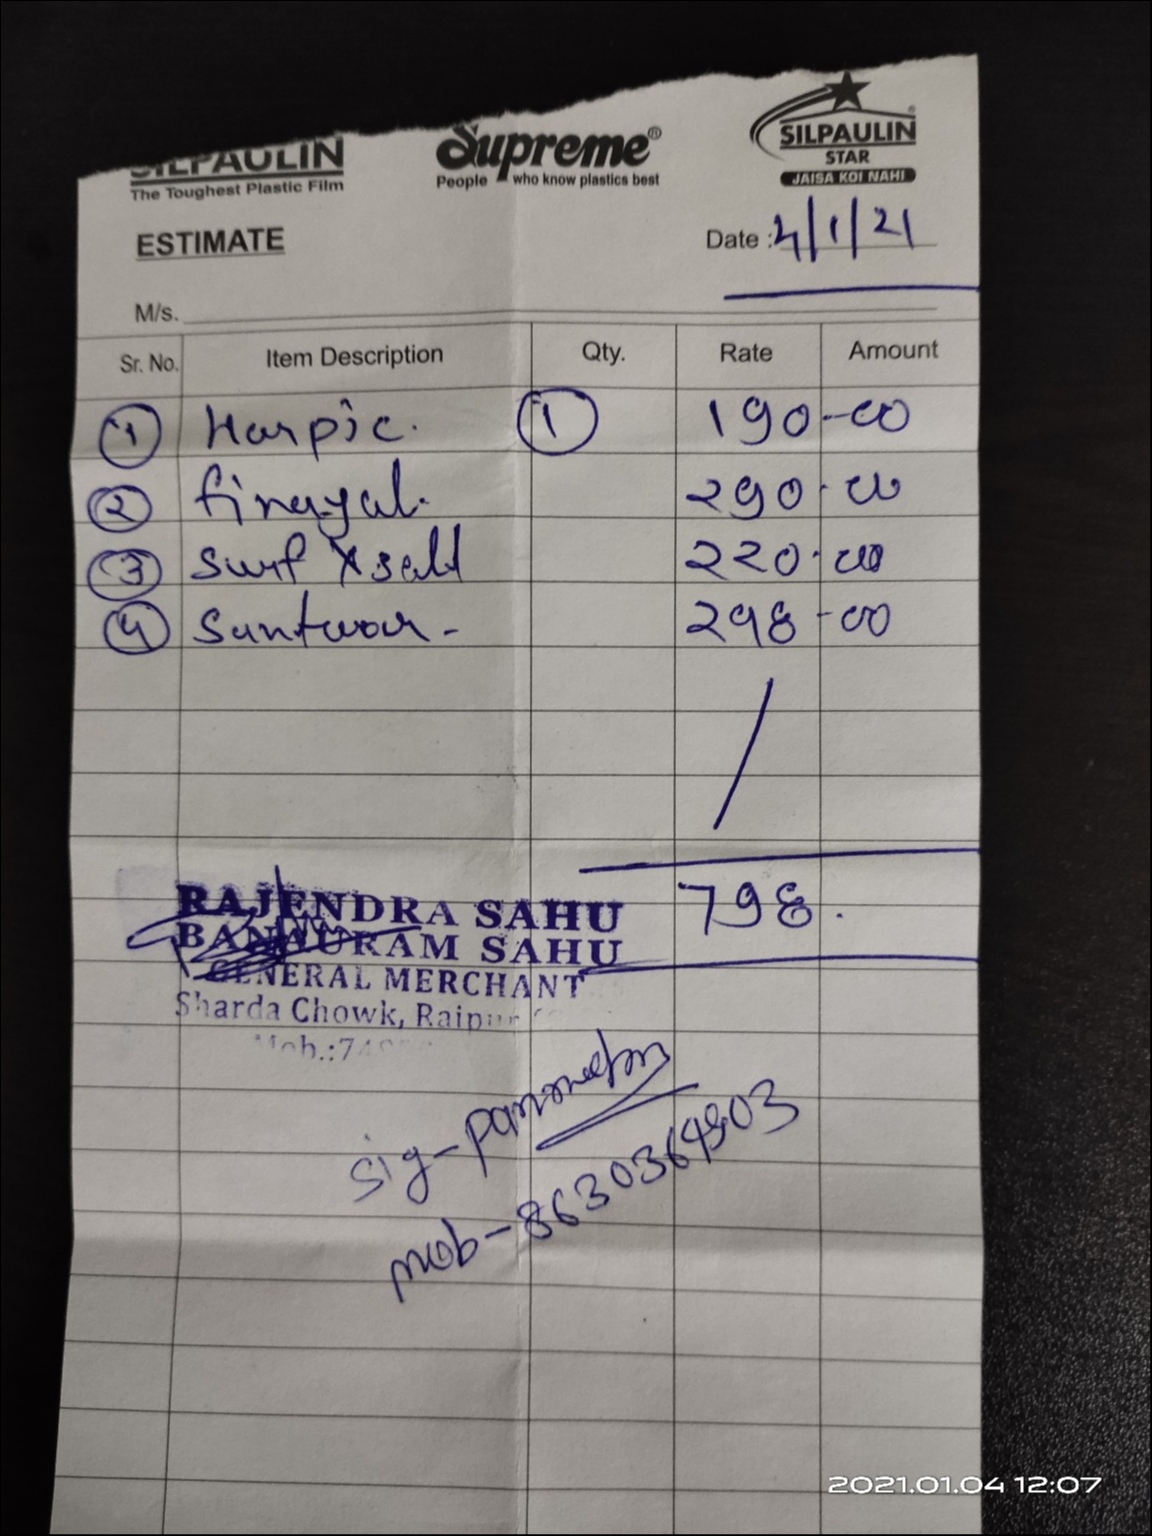 SILPAULIN
The Toughest Plastic Film
Supreme®
People who know plastics best
SILPAULIN®
STAR
JAISA KOI NAHI
ESTIMATE
Date : 4/1/21
M/s.
Sr. No. Item Description Qty. Rate Amount
1 Harpic. 1 190-00
2 finayal. 290.00
3 Surf Xsell 220.00
4 298-00
798.
RAJENDRA SAHU
BANAURAM SAHU
GENERAL MERCHANT
Sharda Chowk, Raipur
Mob.:74
Sig-
mob-8630364903
2021.01.04 12:07